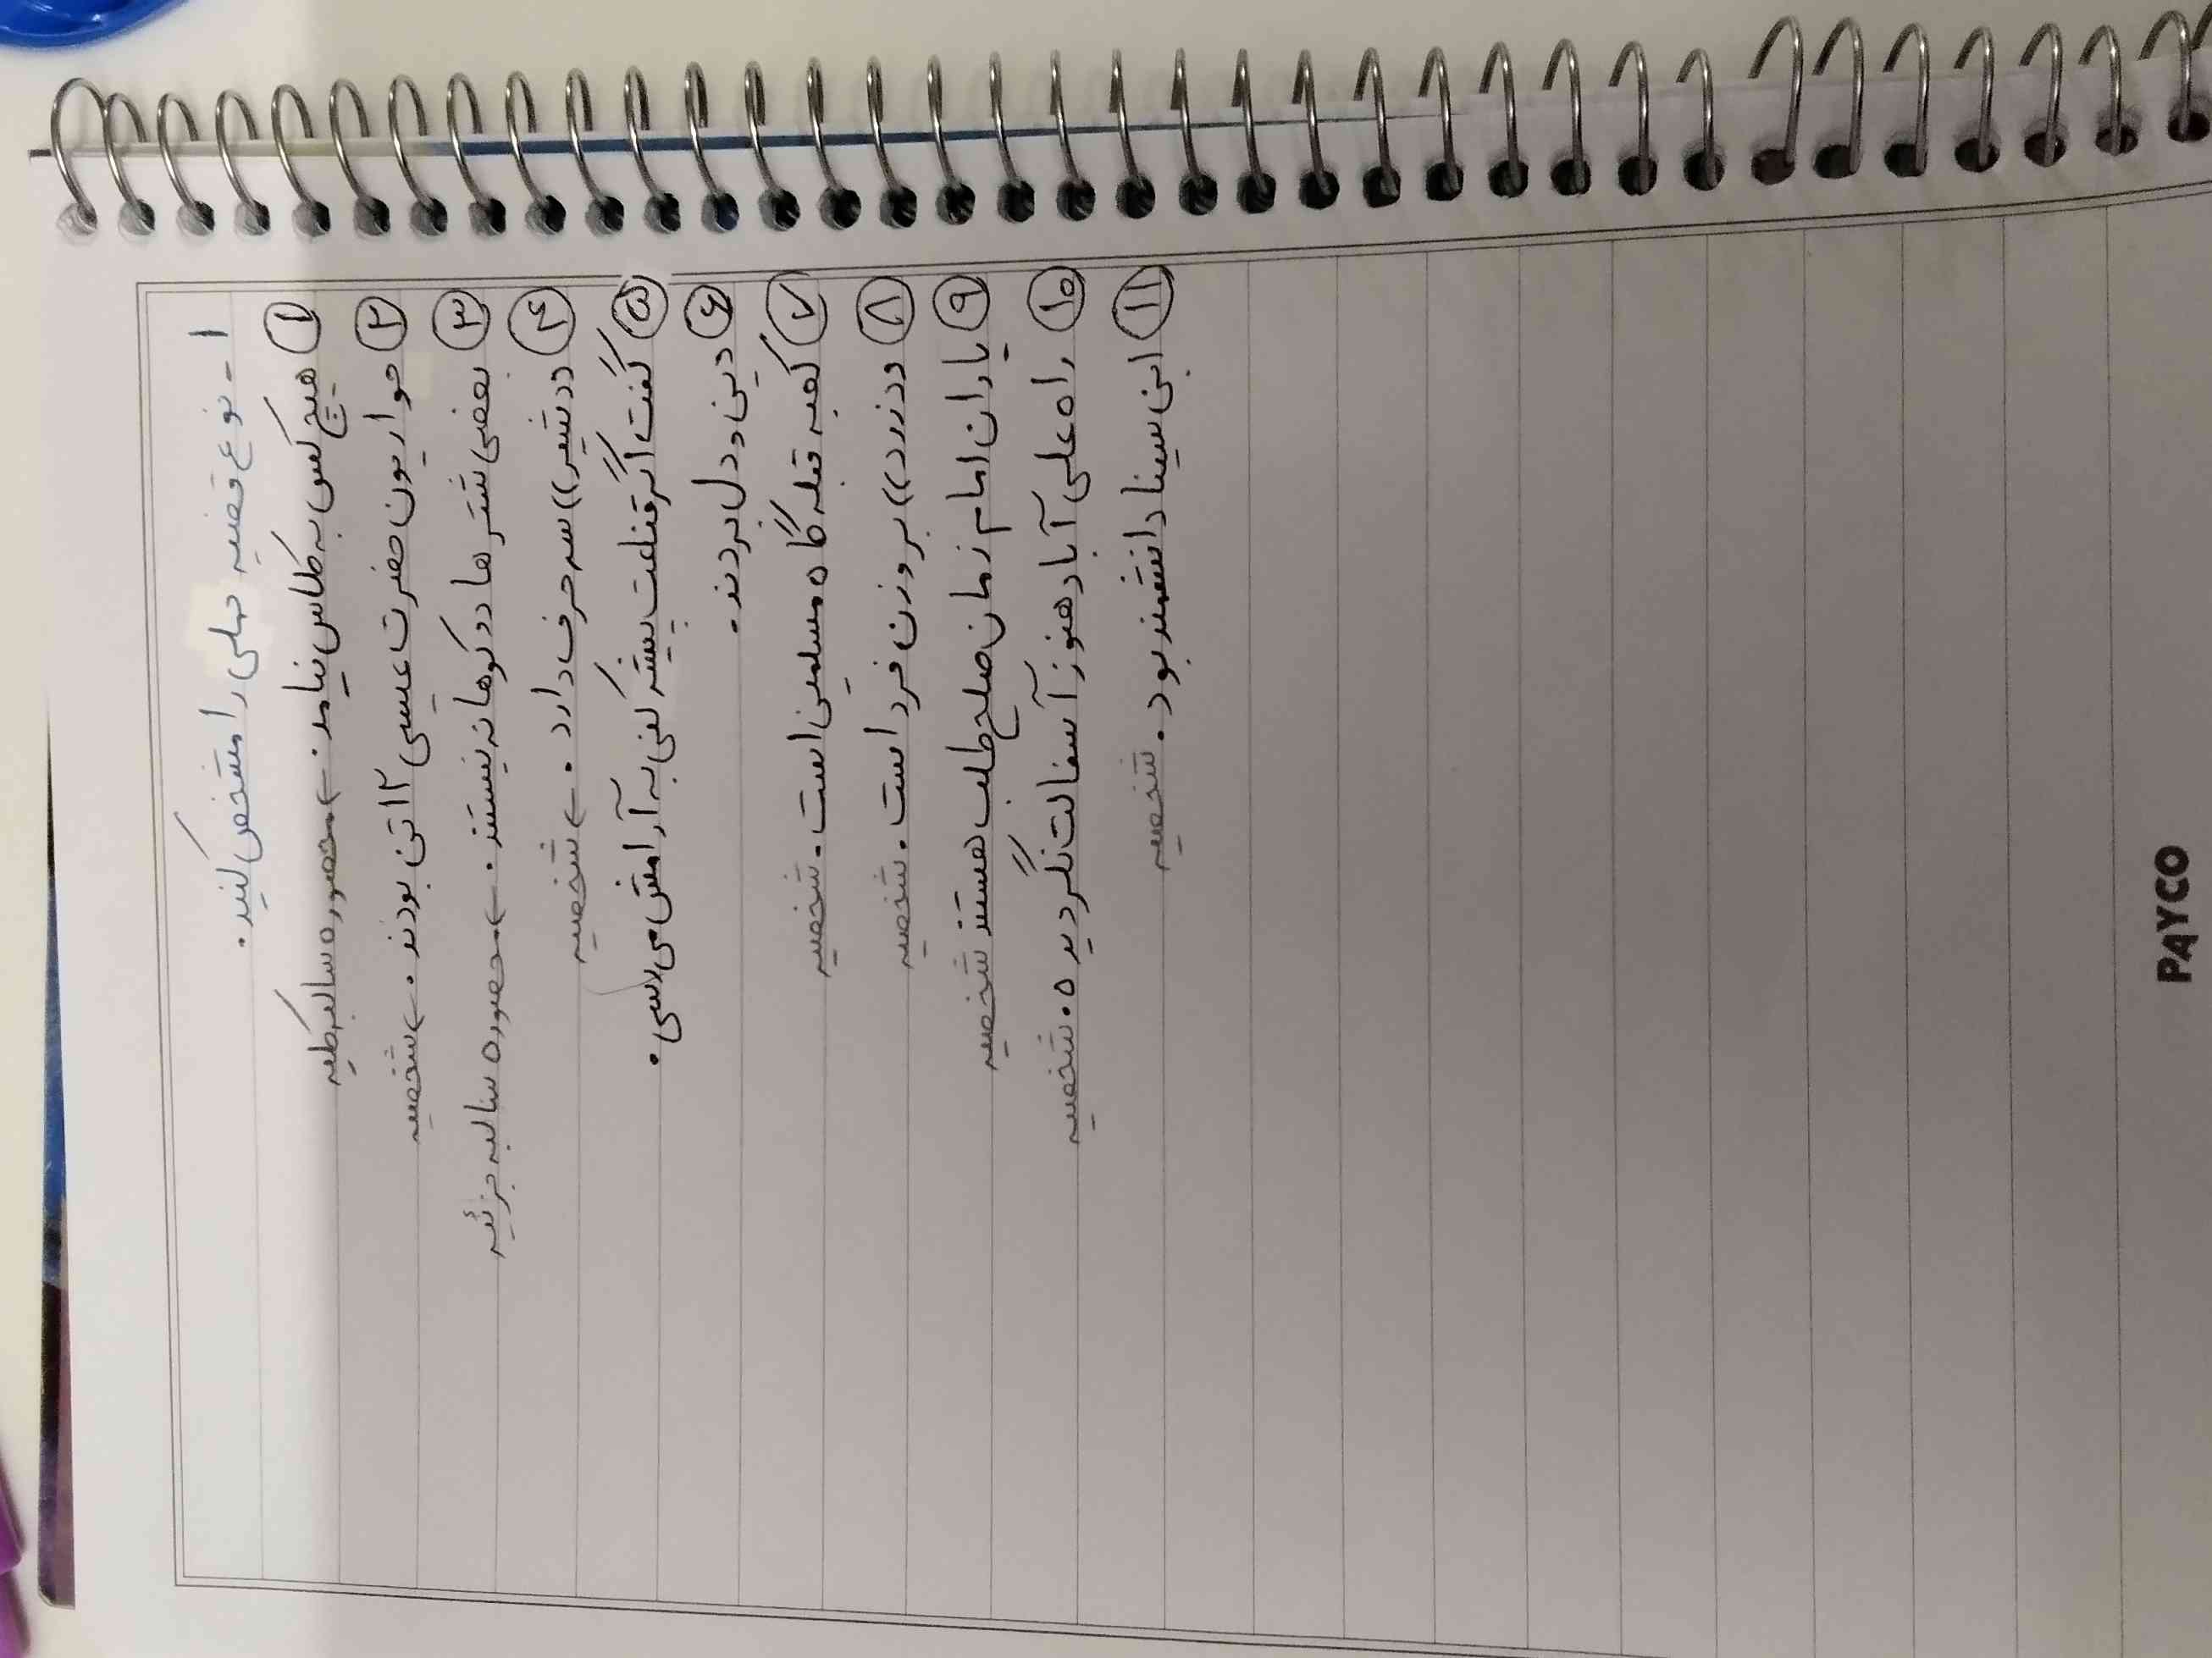 ۱- نوع قضیه حملی را مشخص کنید.
۱ هیچ کس به کلاس نیامد. ← محصوره سالبه کلیه
۲ حواریون حضرت عیسی ۱۲ تن بودند. ← شخصیه
۳ بعضی شترها دو کوهانه نیستند. ← محصوره سالبه جزئیه
۴ ((شیر)) سه حرف دارد. ← شخصیه
۵ گفت اگر قناعت پیشه کنی به آرامش می‌رسی.
۶ دین و دل بردند.
۷ کعبه قبله گاه مسلمین است. شخصیه
۸ ((زرد)) بر وزن فرد است. شخصیه
۹ یاران امام زمان صلح طلب هستند شخصیه
۱۰ راه علی آباد هنوز آسفالت نگردیده. شخصیه
۱۱ ابن سینا دانشمند بود. شخصیه
PAYCO